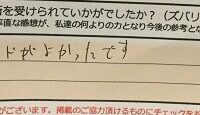 を受けられていかがでしたか？（ズバリ
率直な感想が、私達の何よりの力となり今後の参考とな
ドがよかったです
がございます。掲載のご協力頂けるものにチェックをお